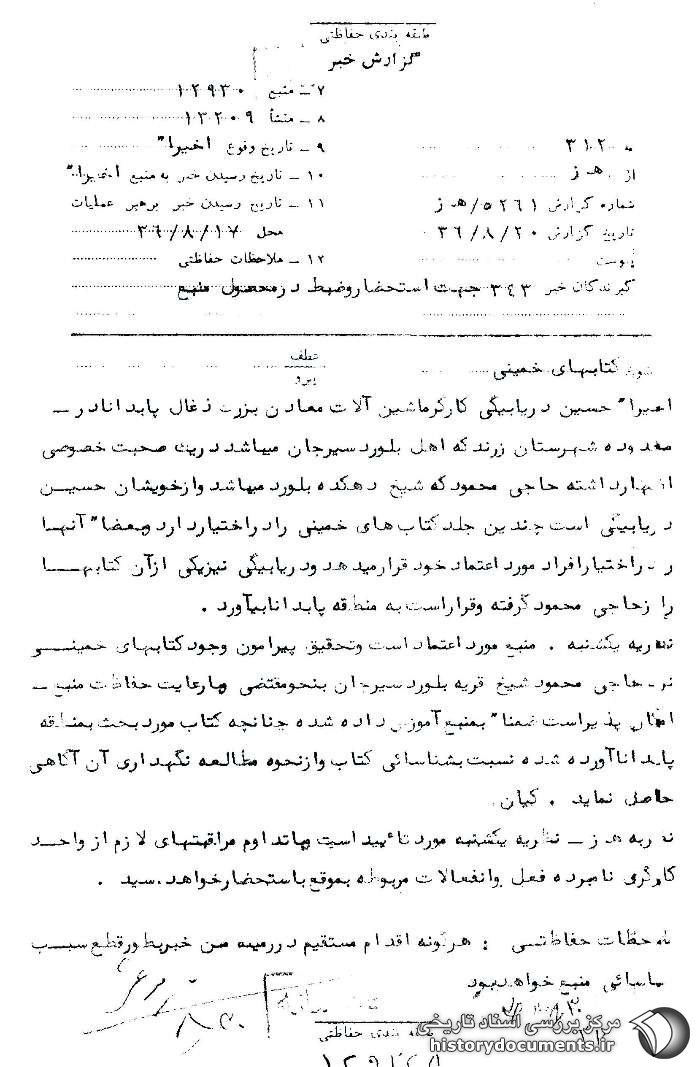 طبقه بندی حفاظتی
گزارش خبر
۷ ـ منبع ۱۲۹۳۰
۸ ـ منشأ ۱۳۲۰۹
۹ ـ تاریخ وقوع اخیرا"
۱۰ ـ تاریخ رسیدن خبر به منبع اخیرا"
۱۱ ـ تاریخ رسیدن خبر برهبر عملیات
محل ۳۶/۸/۱۷
۱۲ ـ ملاحظات حفاظتی
به ۳۱۲
از هـ ز
شماره گزارش ۵۲۶۱/هـ ز
تاریخ گزارش ۳۶/۸/۲۰
پیوست
گیرندگان خبر ۳۴۳ جهت استحضار وضبط در محصول منبع
عطف
پیرو
کتابهای خمینی
اخیرا" حسین دریابیگی کارگر ماشین آلات معادن بزرگ ذغال پابدانا در ـ
محدوده شهرستان زرند که اهل بلورد سیرجان میباشد در یک صحبت خصوصی
اظهار داشته حاجی محمود که شیخ دهکده بلورد میباشد وازخویشان حسین
دریابیگی است چندین جلد کتاب های خمینی را در اختیار دارد وبعضا" آنها
را در اختیار افراد مورد اعتماد خود قرار میدهد ودریابیگی نیز یکی از آن کتابها
را زحاجی محمود گرفته وقرار است به منطقه پابدانا بیآورد .
نظریه یکشنبه . منبع مورد اعتماد است وتحقیق پیرامون وجود کتابهای خمینی
نزد حاجی محمود شیخ قریه بلورد سیرجان بنحو مقتضی وبارعایت حفاظت منبع ـ
امکان پذیر است ضمنا" بمنبع آموزش داده شده چنانچه کتاب مورد بحث بمنطقه
پابدانا آورده شده نسبت بشناسائی کتاب وازنحوه مطالعه نگهداری آن آگاهی
حاصل نماید . کیان
نظریه هـ ز ـ نظریه یکشنبه مورد تائید است وباتداوم مراقبتهای لازم از واحد
کارگری نامبرده فعل وانفعالات مربوطه بموقع باستحضار خواهد رسید .
ملاحظات حفاظتی : هرگونه اقدام مستقیم در زمینه متن خبر بطور قطع سبب
شناسائی منبع خواهد بود
۸/۳۰
طبقه بندی حفاظتی
مرکز بررسی اسناد تاریخی
historydocuments.ir